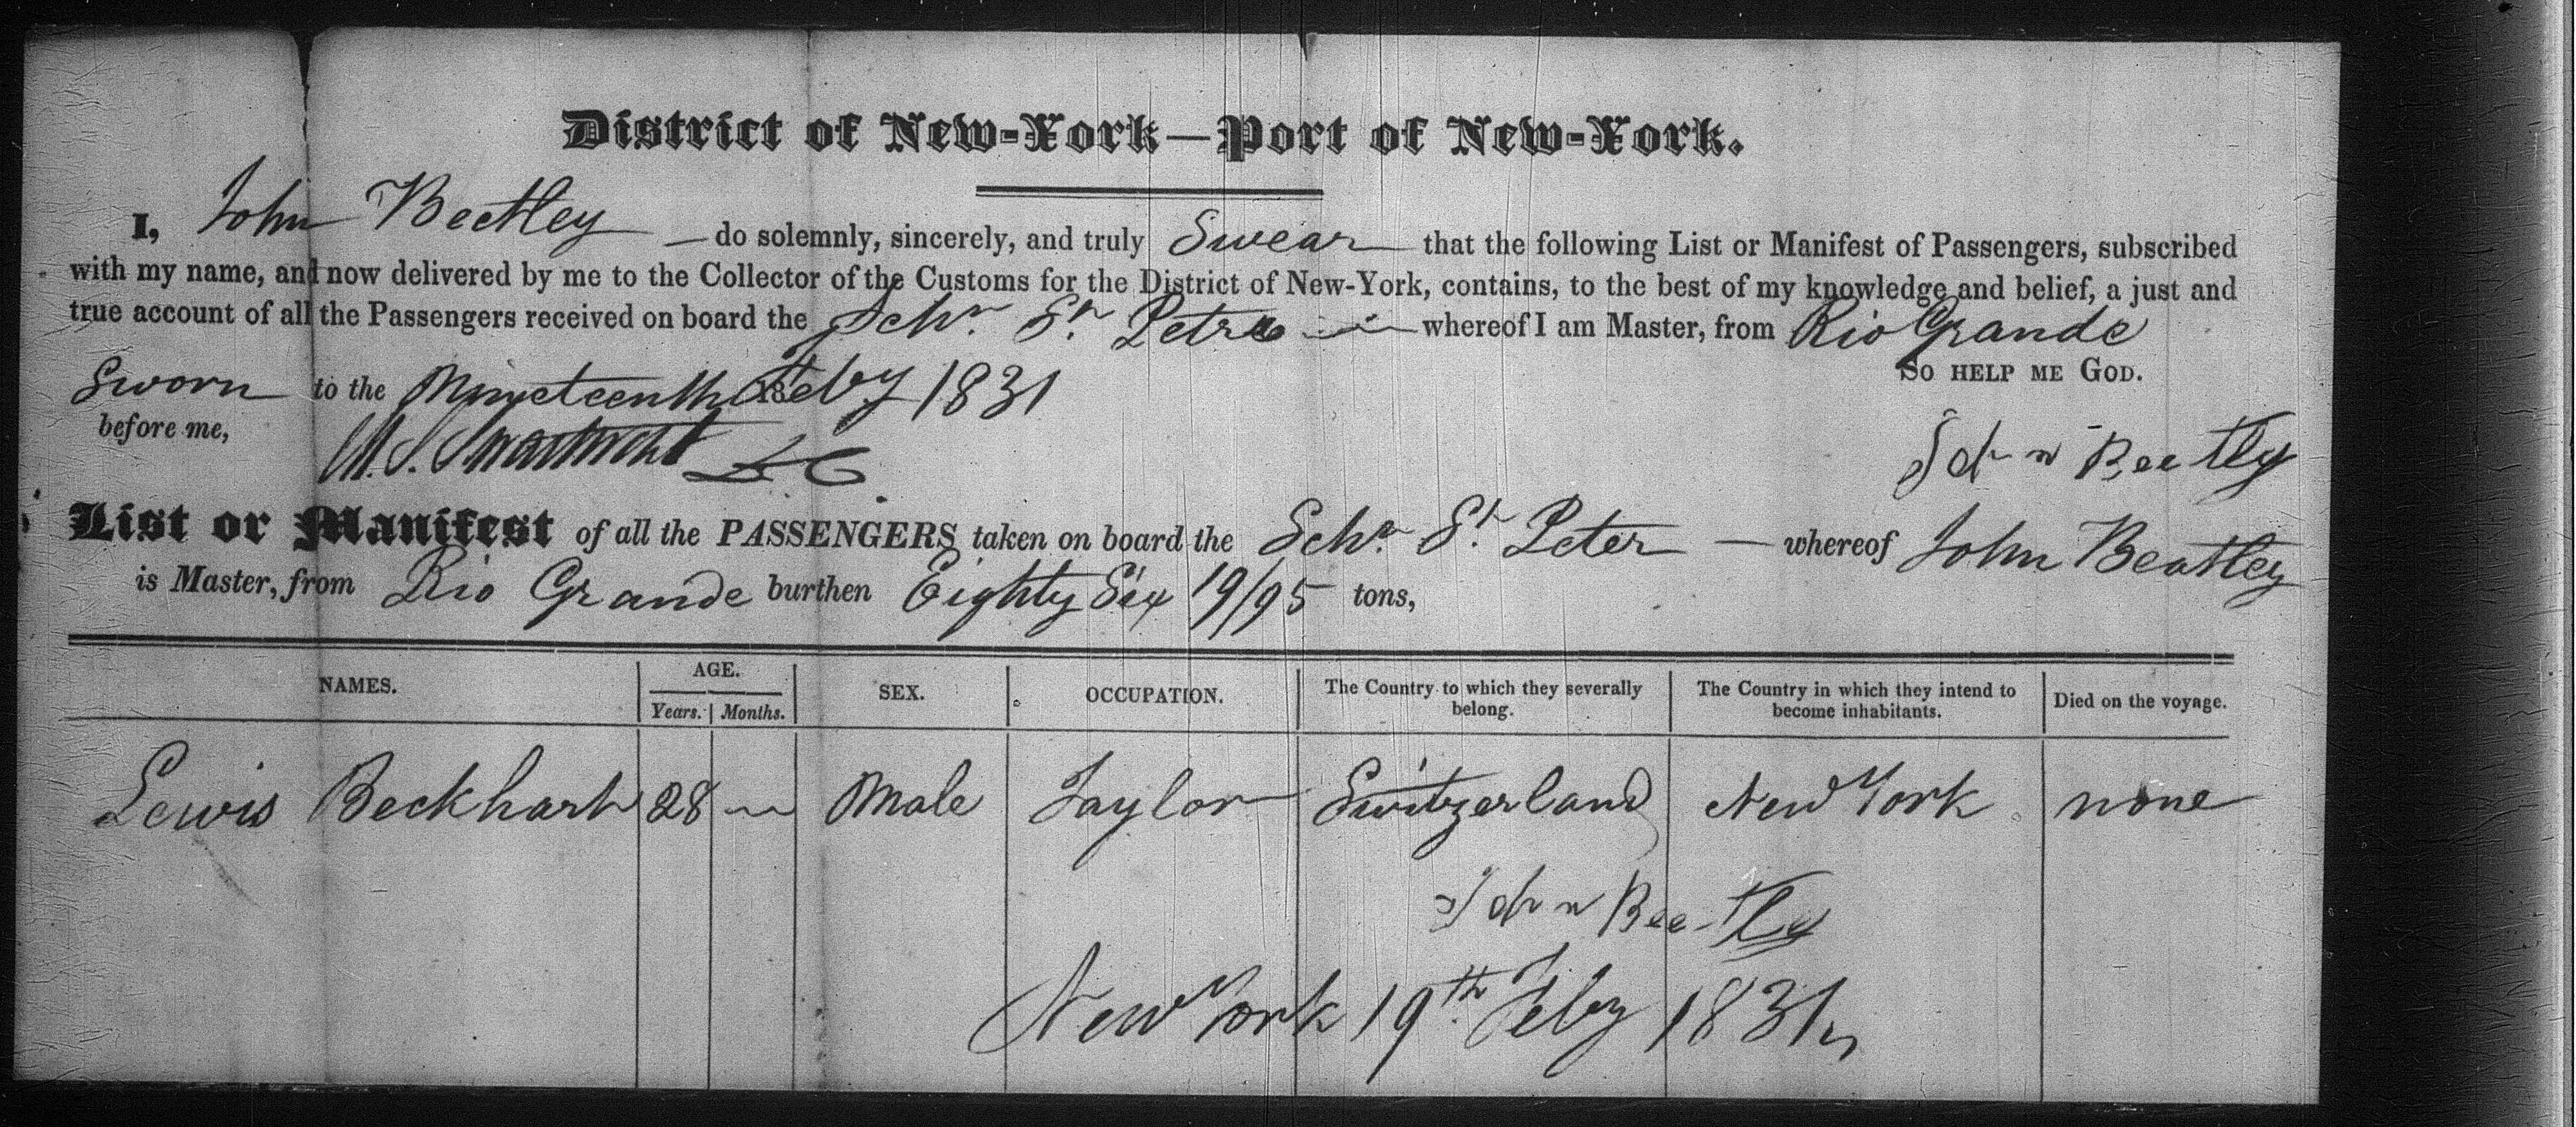 District of New-York—Port of New-York.
I, John Beetley — do solemnly, sincerely, and truly Swear that the following List or Manifest of Passengers, subscribed
with my name, and now delivered by me to the Collector of the Customs for the District of New-York, contains, to the best of my knowledge and belief, a just and
true account of all the Passengers received on board the Schr. St. Petre — whereof I am Master, from Rio Grande
So help me God.
Sworn to the Nineteenth Feby 1831
before me,
M. S. Swartwout D.C.
John Beetly
List or Manifest of all the PASSENGERS taken on board the Schr. St. Peter — whereof John Beatley
is Master, from Rio Grande burthen Eighty Six 19/95 tons,
NAMES. AGE. SEX. OCCUPATION. The Country to which they severally belong. The Country in which they intend to become inhabitants. Died on the voyage.
Years. Months.
Lewis Beckhart 28 — Male Taylor Switzerland New York none
John Beetly
New York 19th Feby 1831